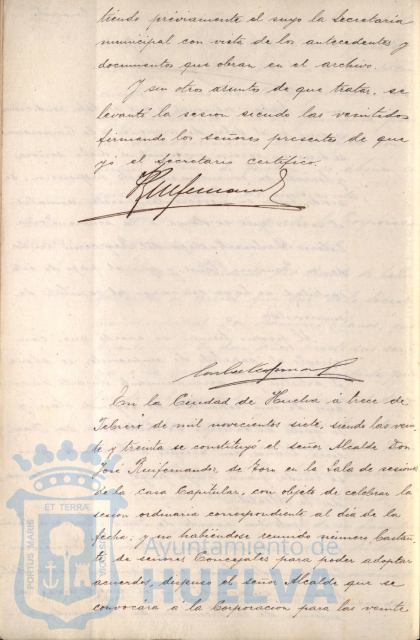 tiendo préviamente el suyo la Secretaria
municipal con vista de los antecedentes y
documentos que obran en el archivo.
Y sin otros asuntos de que tratar, se
levantó la sesion siendo las veintidos
firmando los señores presentes de que
yó el Secretario certifico.
En la Ciudad de Huelva á trece de
Febrero de mil novecientos siete, siendo las vein-
te y treinta se constituyó el señor Alcalde Don
José Ruifernandez de Torn en la Sala de sesiones
de la casa Capitular, con objeto de celebrar la
sesion ordinaria correspondiente al dia de la
fecha; y no habiéndose reunido número bastan-
te de señores Concejales para poder adoptar
acuerdos, dispuso el señor Alcalde que se
convocara á la Corporacion para las veinte
PORTUS MARIS
ET TERRÆ
Ayuntamiento de
HUELVA